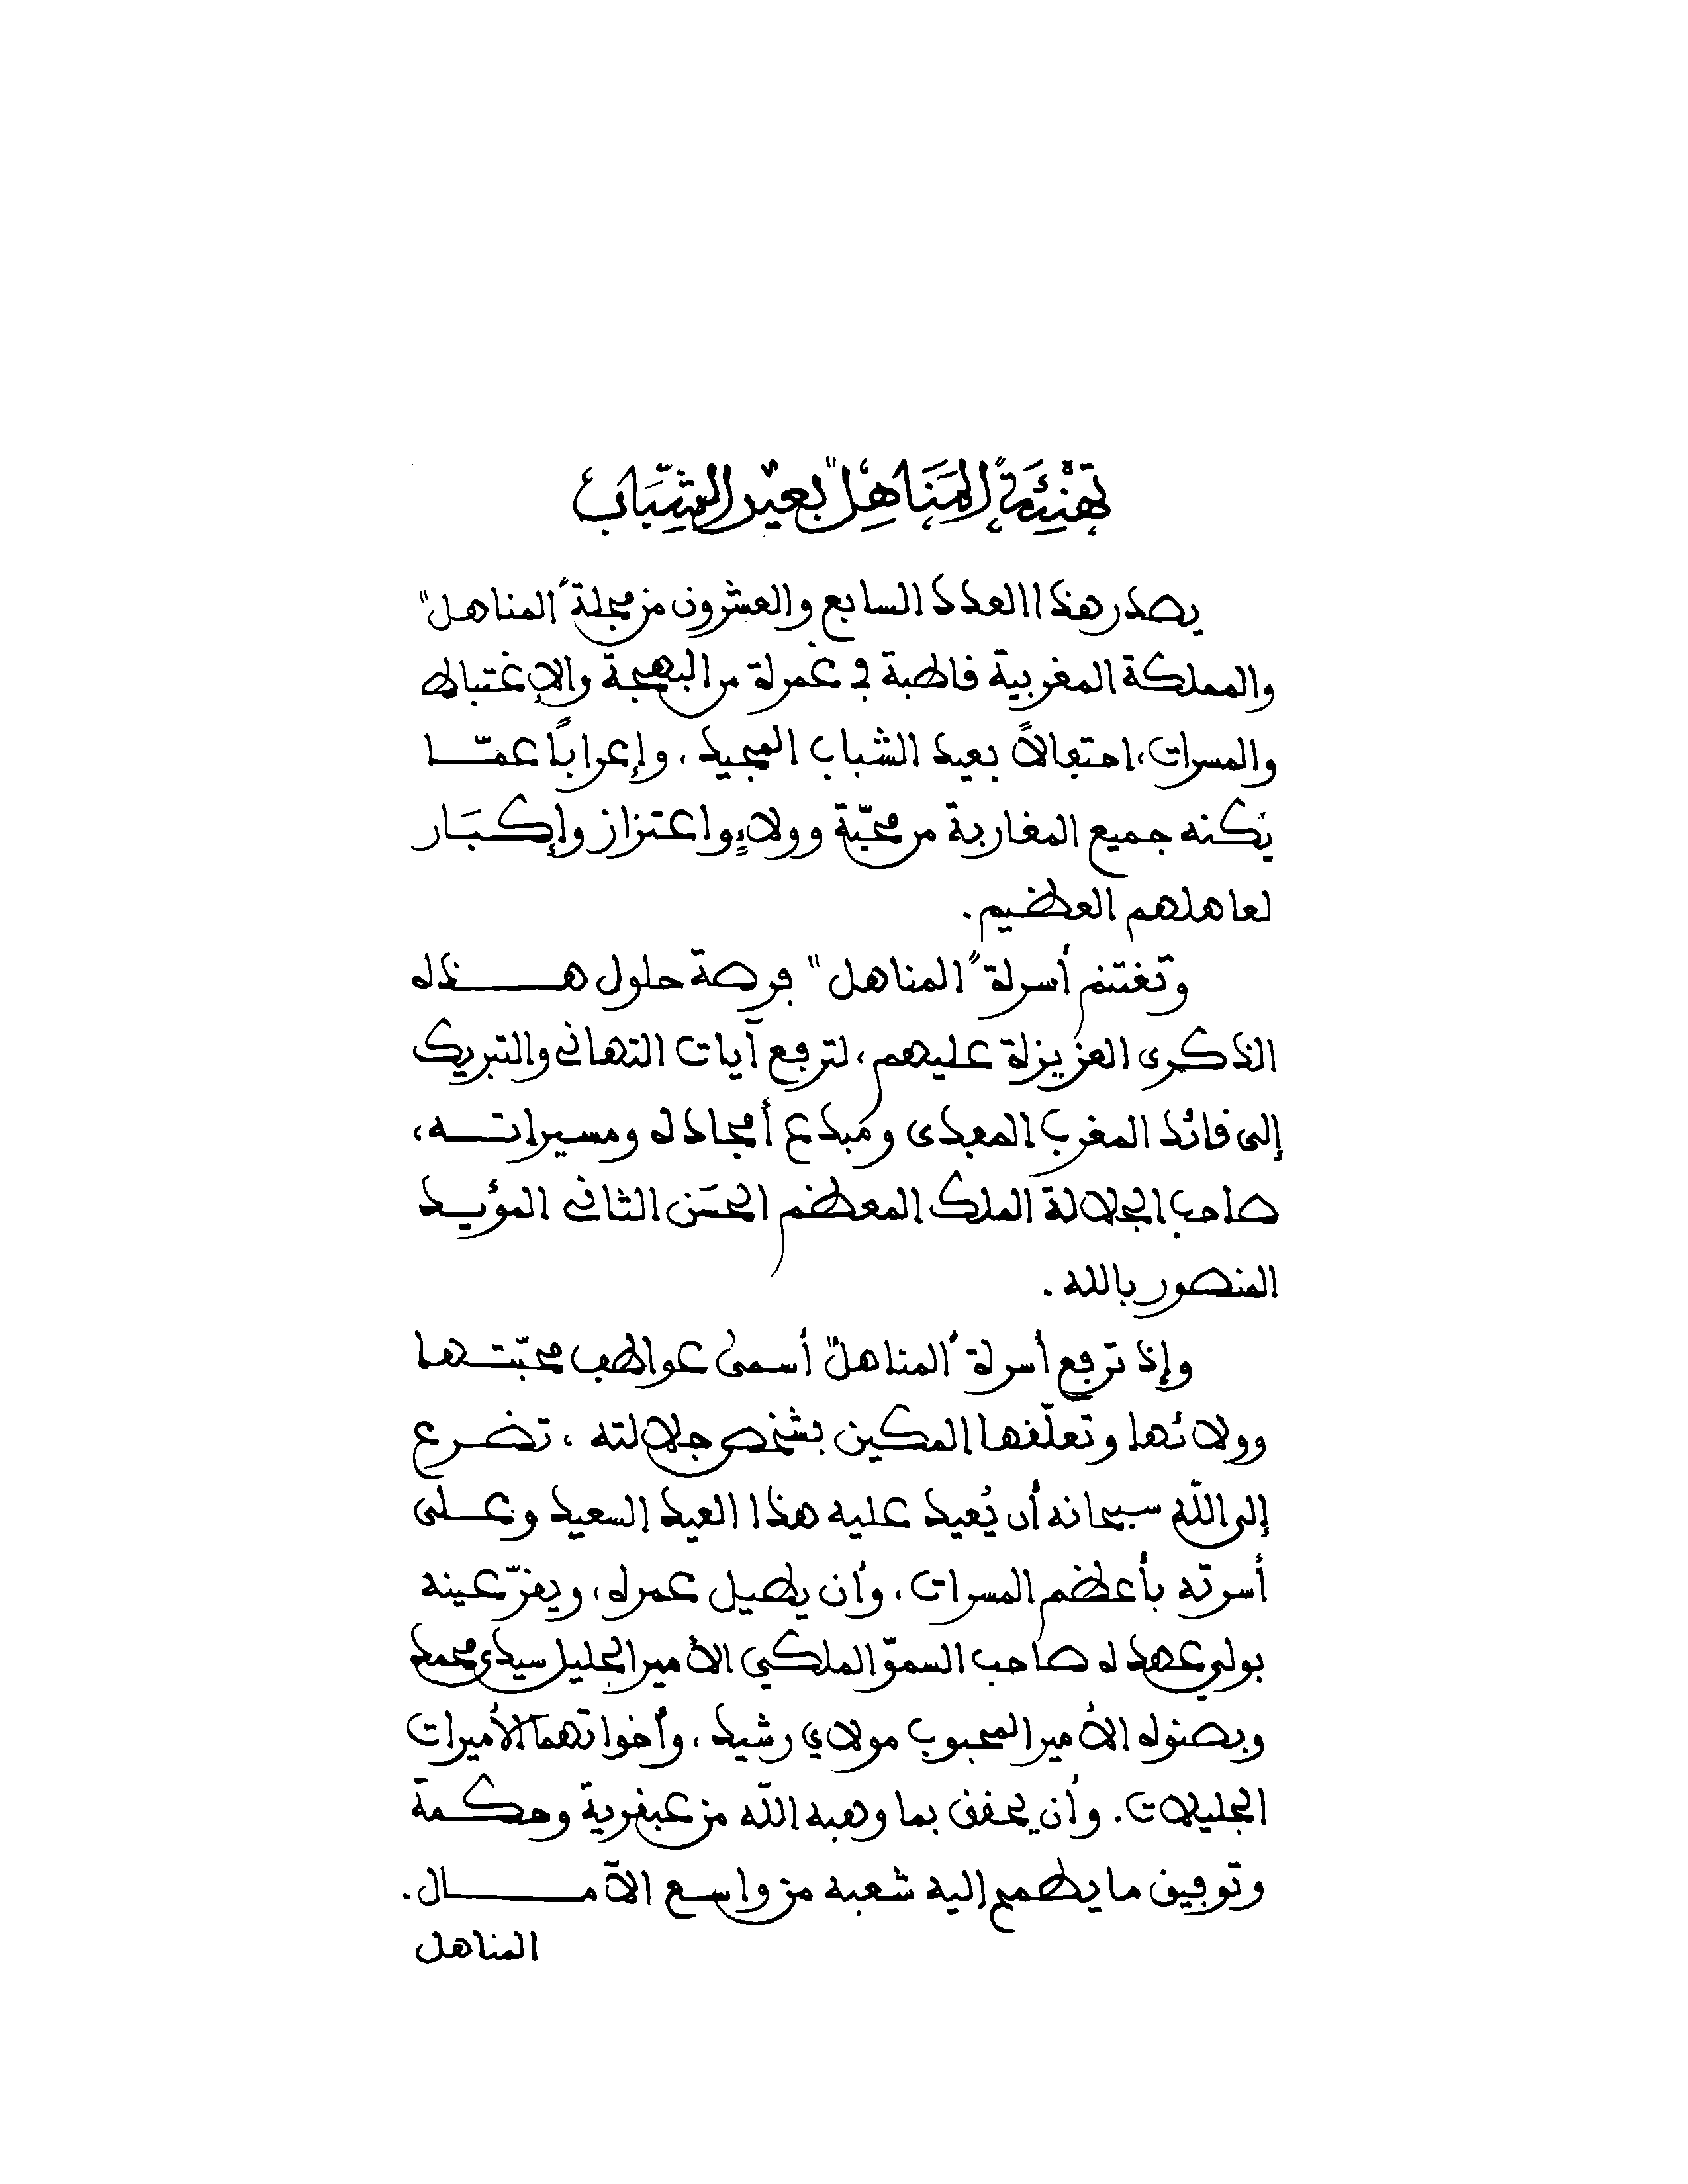 تَهْنِئَة "المَنَاهِل" بعيد الشّبَاب
يصدر هذا العدد السابع والعشرون من مجلة "المناهل"
والمملكة المغربية قاطبة في غمرة من البهجة والإغتباط
والمسرات، احتفالاً بعيد الشباب المجيد، وإعرابًا عمّـا
يكنه جميع المغاربة من محبّة وولاءٍ واعتزاز وإكـبَـار
لعاهلهم العظيم.
وتغتنم أسرة "المناهل" فرصة حلول هـــذه
الذكرى العزيزة عليهم، لترفع آيات التهاني والتبريك
إلى قائد المغرب المفدى ومبدع أمجاده ومسيراتـه،
صاحب الجلالة الملك المعظم الحسَن الثاني المؤيـد
المنصور بالله.
وإذ ترفع أسرة "المناهل" أسمى عواطف محبّـتـها
وولائها وتعلّقها المكين بشخص جلالته، تضـرع
إلى اللّه سبحانه أن يُعيد عليه هذا العيد السعيد وعـلى
أسرته بأعظم المسرات، وأن يطيل عمره، ويقرّ عينه
بولي عهده صاحب السموّ الملكي الأمير الجليل سيدي محمد
وبصنوه الأمير المحبوب مولاي رشيد، وأخواتهما الأميرات
الجليلات. وأن يحقق بما وهبه اللّه من عبقرية وحكـمة
وتوفيق ما يطمح إليه شعبه من واسـع الآمـــال.
المناهل